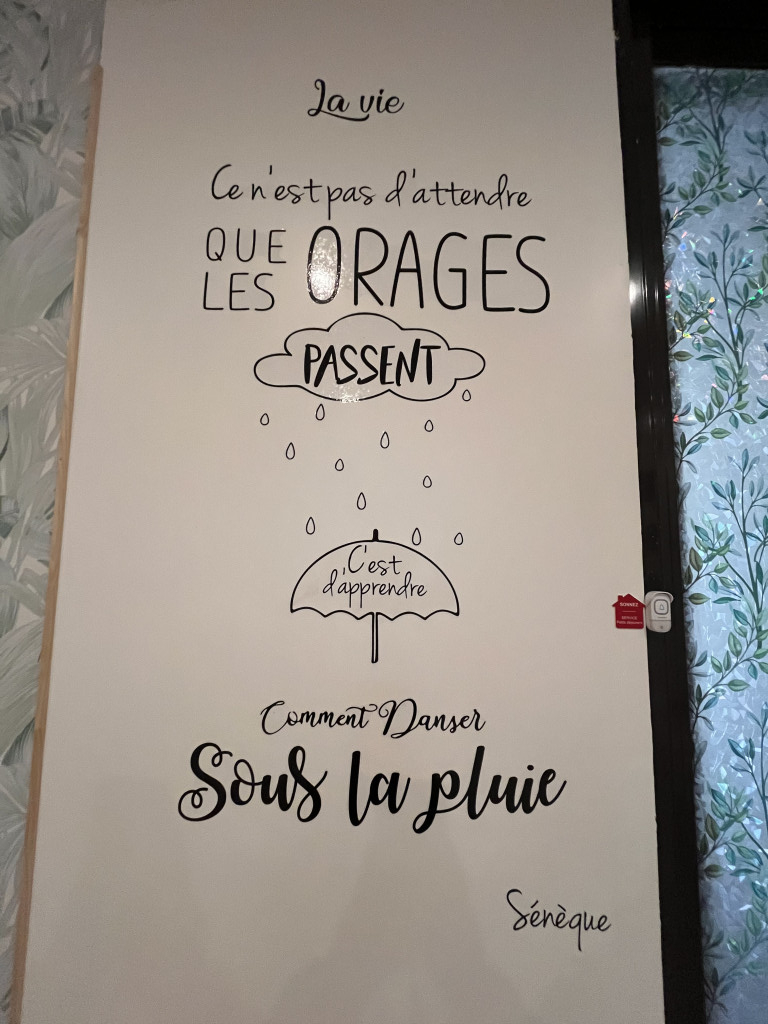 La vie
Ce n'est pas d'attendre
QUE
LES ORAGES
PASSENT
C'est
d'apprendre
Comment Danser
Sous la pluie
Sénèque
SONNEZ
SERVICE